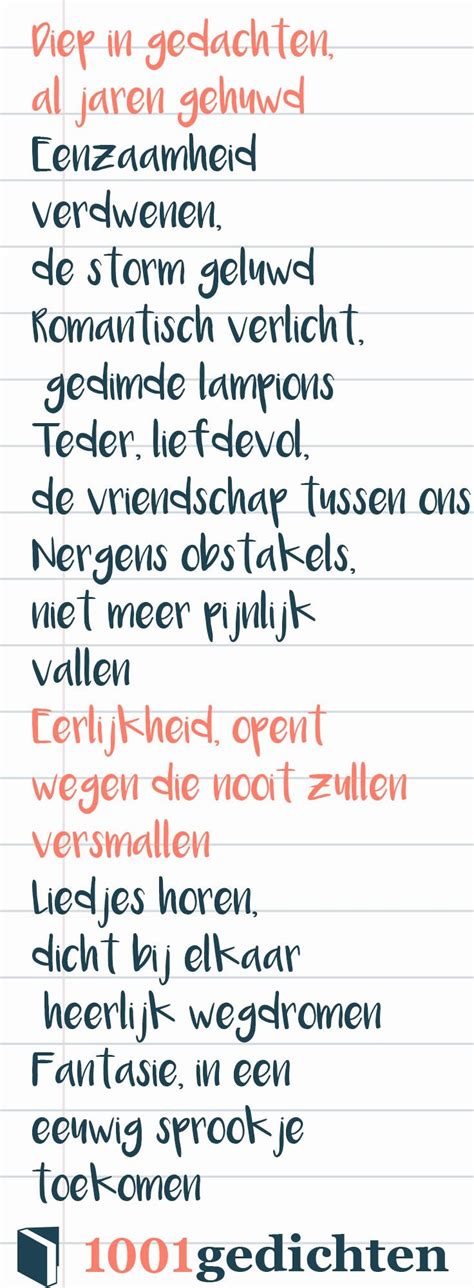 Diep in gedachten,
al jaren gehuwd
Eenzaamheid
verdwenen,
de storm geluwd
Romantisch verlicht,
gedimde lampions
Teder, liefdevol,
de vriendschap tussen ons
Nergens obstakels,
niet meer pijnlijk
vallen
Eerlijkheid, opent
wegen die nooit zullen
versmallen
Liedjes horen,
dicht bij elkaar
heerlijk wegdromen
Fantasie, in een
eeuwig sprookje
toekomen
1001gedichten